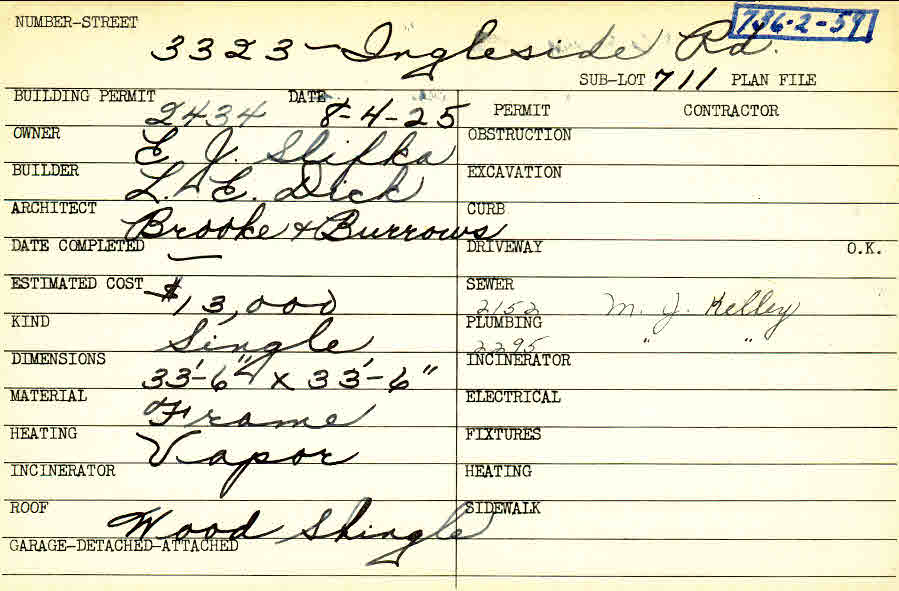 NUMBER-STREET 736-2-59
3323 - Ingleside Rd.
SUB-LOT 711 PLAN FILE
BUILDING PERMIT 2434 DATE 8-4-25 PERMIT CONTRACTOR
OWNER E. J. Slifka OBSTRUCTION
BUILDER L. E. Dick EXCAVATION
ARCHITECT Brooke & Burrows CURB
DATE COMPLETED — DRIVEWAY O.K.
ESTIMATED COST $13,000 SEWER 2152 M. J. Kelley
KIND Single PLUMBING 2295 " "
DIMENSIONS 33'-6" x 33'-6" INCINERATOR
MATERIAL Frame ELECTRICAL
HEATING Vapor FIXTURES
INCINERATOR HEATING
ROOF Wood Shingle SIDEWALK
GARAGE-DETACHED-ATTACHED